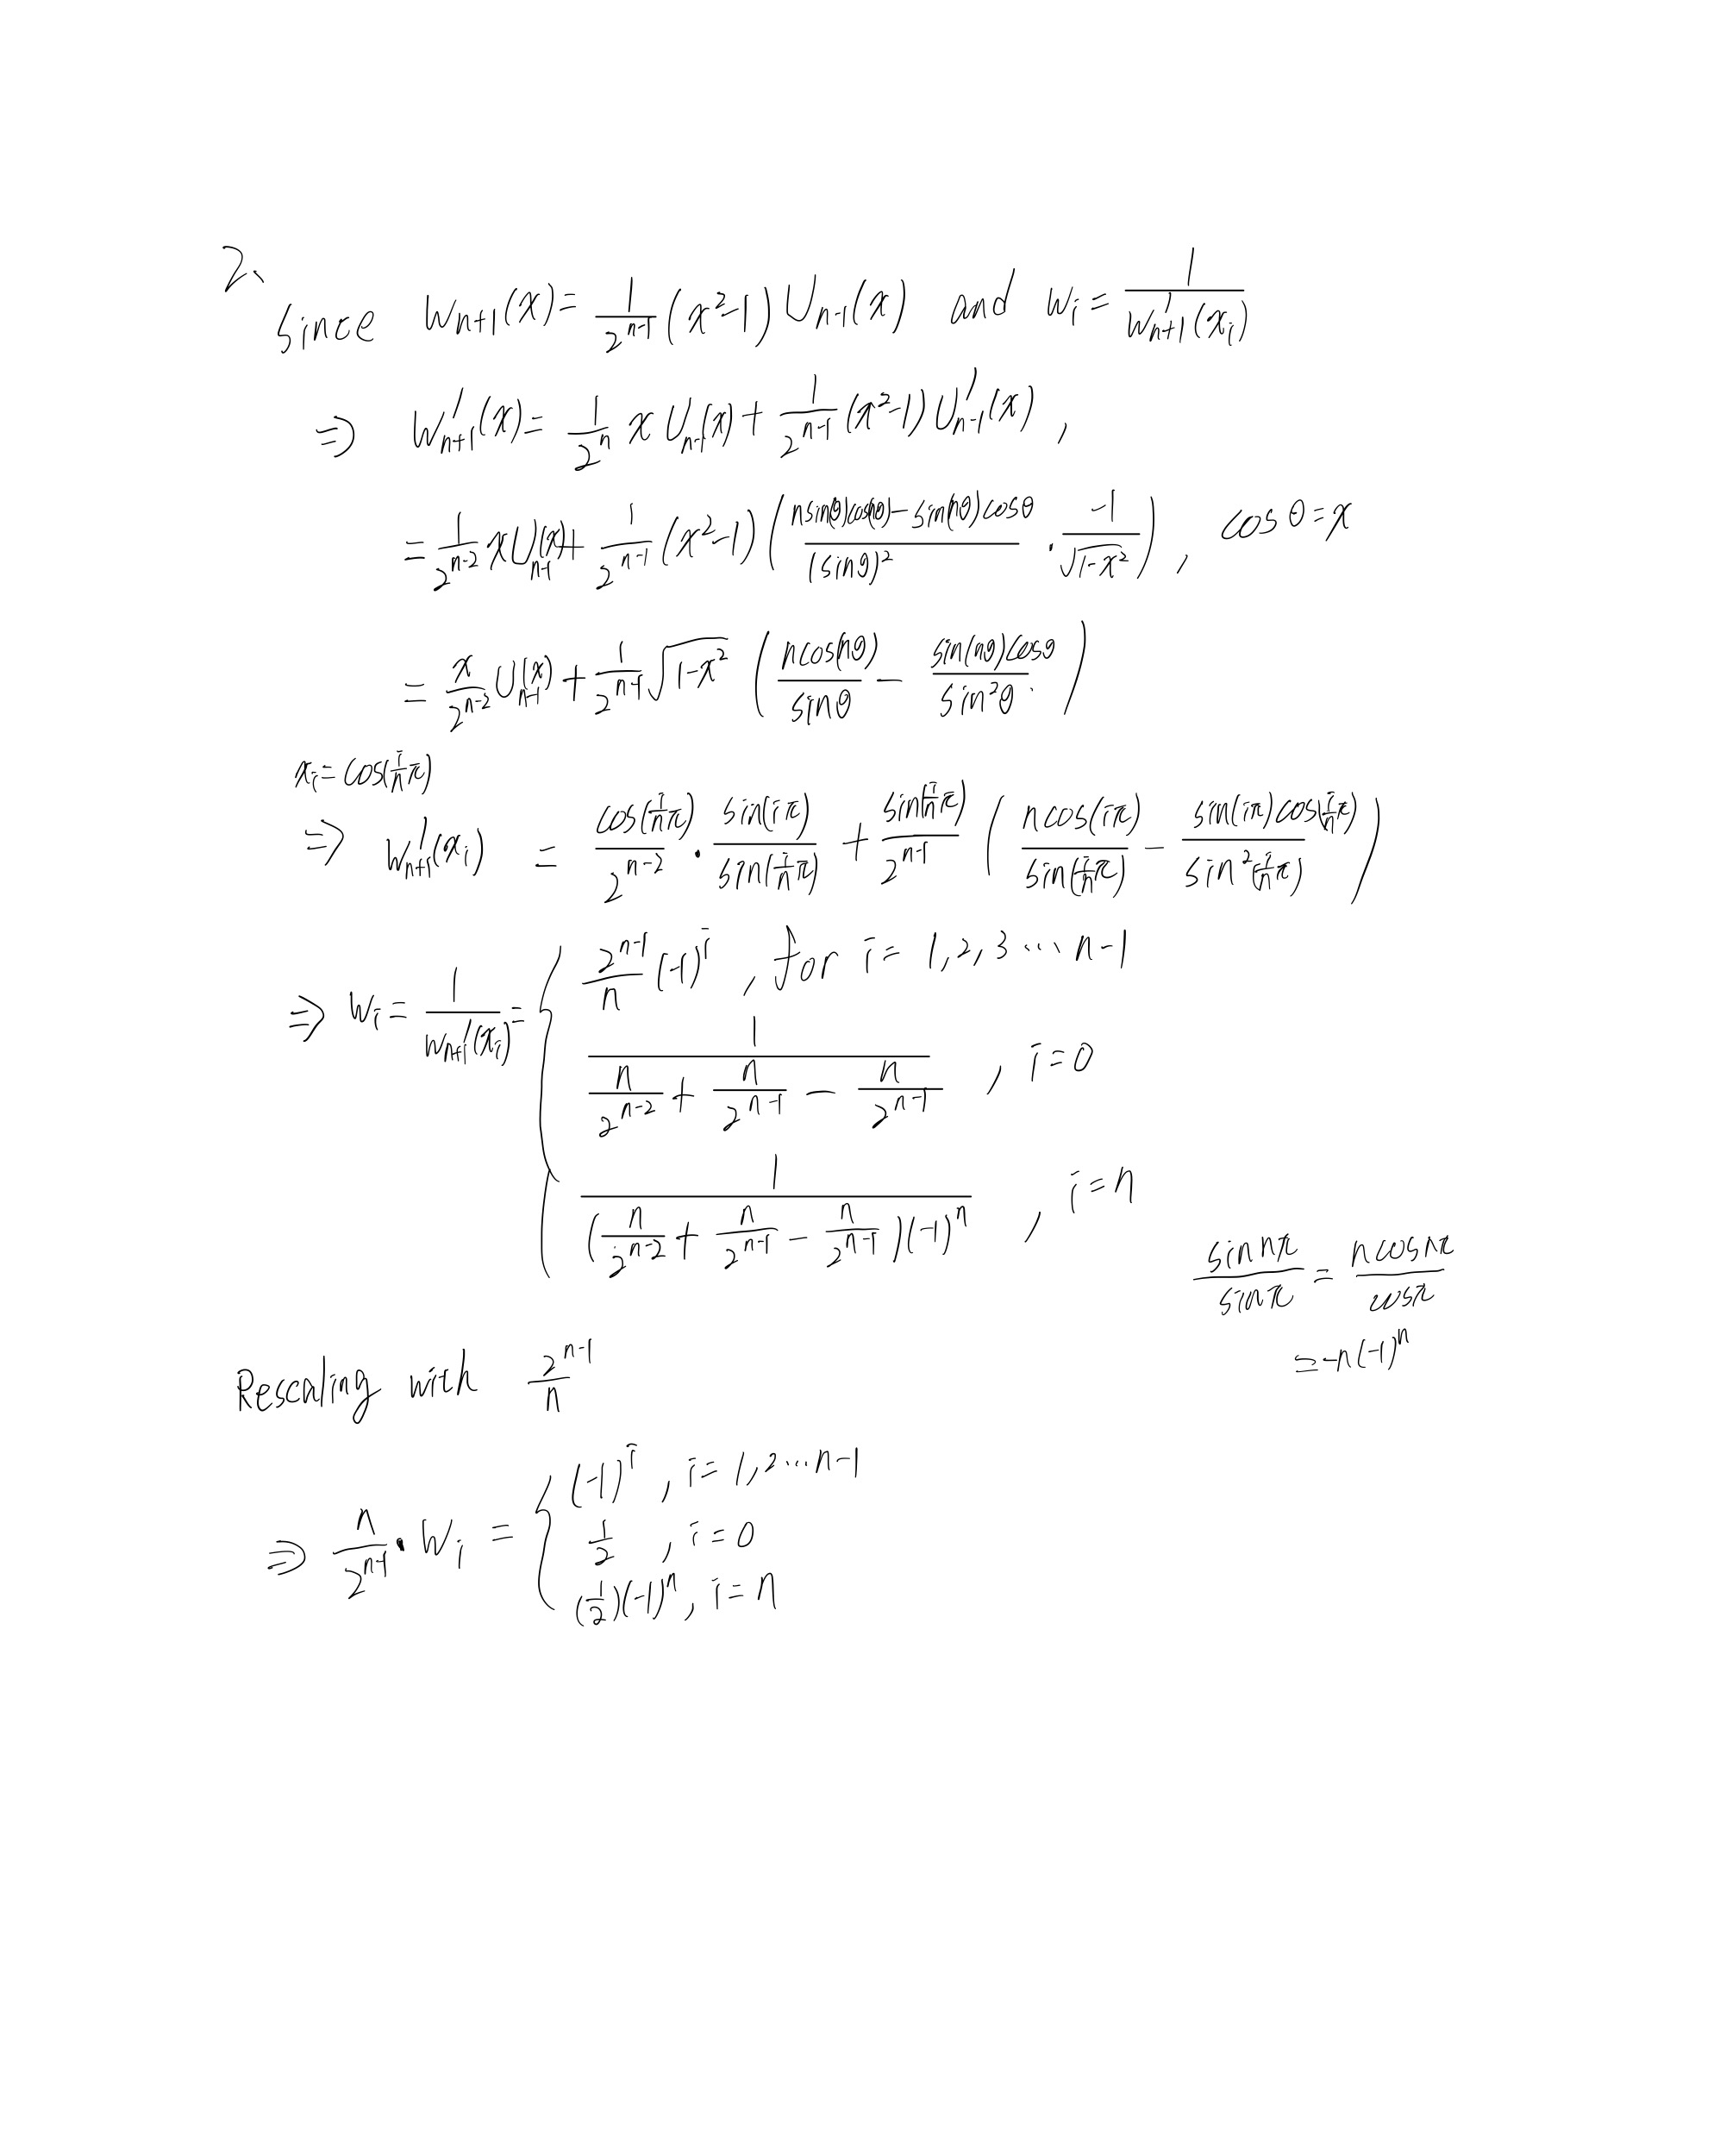 2.
Since $W_{n+1}(x)=\frac{1}{2^{n-1}}(x^2-1)U_{n-1}(x)$ and $w_i=\frac{1}{W'_{n+1}(x_i)}$
$\Rightarrow W'_{n+1}(x)=\frac{1}{2^n}xU_{n-1}(x)+\frac{1}{2^{n-1}}(x^2-1)U'_{n-1}(x)$,
$=\frac{1}{2^{n-2}}xU_{n-1}(x)+\frac{1}{2^{n-1}}(x^2-1)\left(\frac{n\sin(\theta)\cos(n\theta)-\sin(n\theta)\cos\theta}{(\sin\theta)^2}\cdot\frac{-1}{\sqrt{1-x^2}}\right)$, $\cos\theta=x$
$=\frac{x}{2^{n-2}}U_{n-1}(x)+\frac{1}{2^{n-1}}\sqrt{1-x^2}\left(\frac{n\cos(n\theta)}{\sin\theta}-\frac{\sin(n\theta)\cos\theta}{\sin^2\theta}\right)$
$x_i=\cos(\frac{i}{n}\pi)$
$\Rightarrow W'_{n+1}(x_i)=\frac{\cos(\frac{i}{n}\pi)}{2^{n-2}}\cdot\frac{\sin(i\pi)}{\sin(\frac{i}{n}\pi)}+\frac{\sin(\frac{i}{n}\pi)}{2^{n-1}}\left(\frac{n\cos(i\pi)}{\sin(\frac{i}{n}\pi)}-\frac{\sin(i\pi)\cos(\frac{i}{n}\pi)}{\sin^2(\frac{i}{n}\pi)}\right)$
$\Rightarrow w_i=\frac{1}{W'_{n+1}(x_i)}=\begin{cases}\frac{2^{n-1}}{n}(-1)^i, & \text{for } i=1,2,3\cdots n-1\\ \frac{1}{\frac{n}{2^{n-2}}+\frac{n}{2^{n-1}}-\frac{n}{2^{n-1}}}, & i=0\\ \frac{1}{(\frac{n}{2^{n-2}}+\frac{n}{2^{n-1}}-\frac{n}{2^{n-1}})(-1)^n}, & i=n\end{cases}$
$\frac{\sin n\pi}{\sin\pi}=\frac{n\cos n\pi}{\cos\pi}$
$=-n(-1)^n$
Rescaling with $\frac{2^{n-1}}{n}$
$\Rightarrow \frac{n}{2^{n-1}}\cdot W_i=\begin{cases}(-1)^i, & i=1,2\cdots n-1\\ \frac{1}{2}, & i=0\\ (\frac{1}{2})(-1)^n, & i=n\end{cases}$